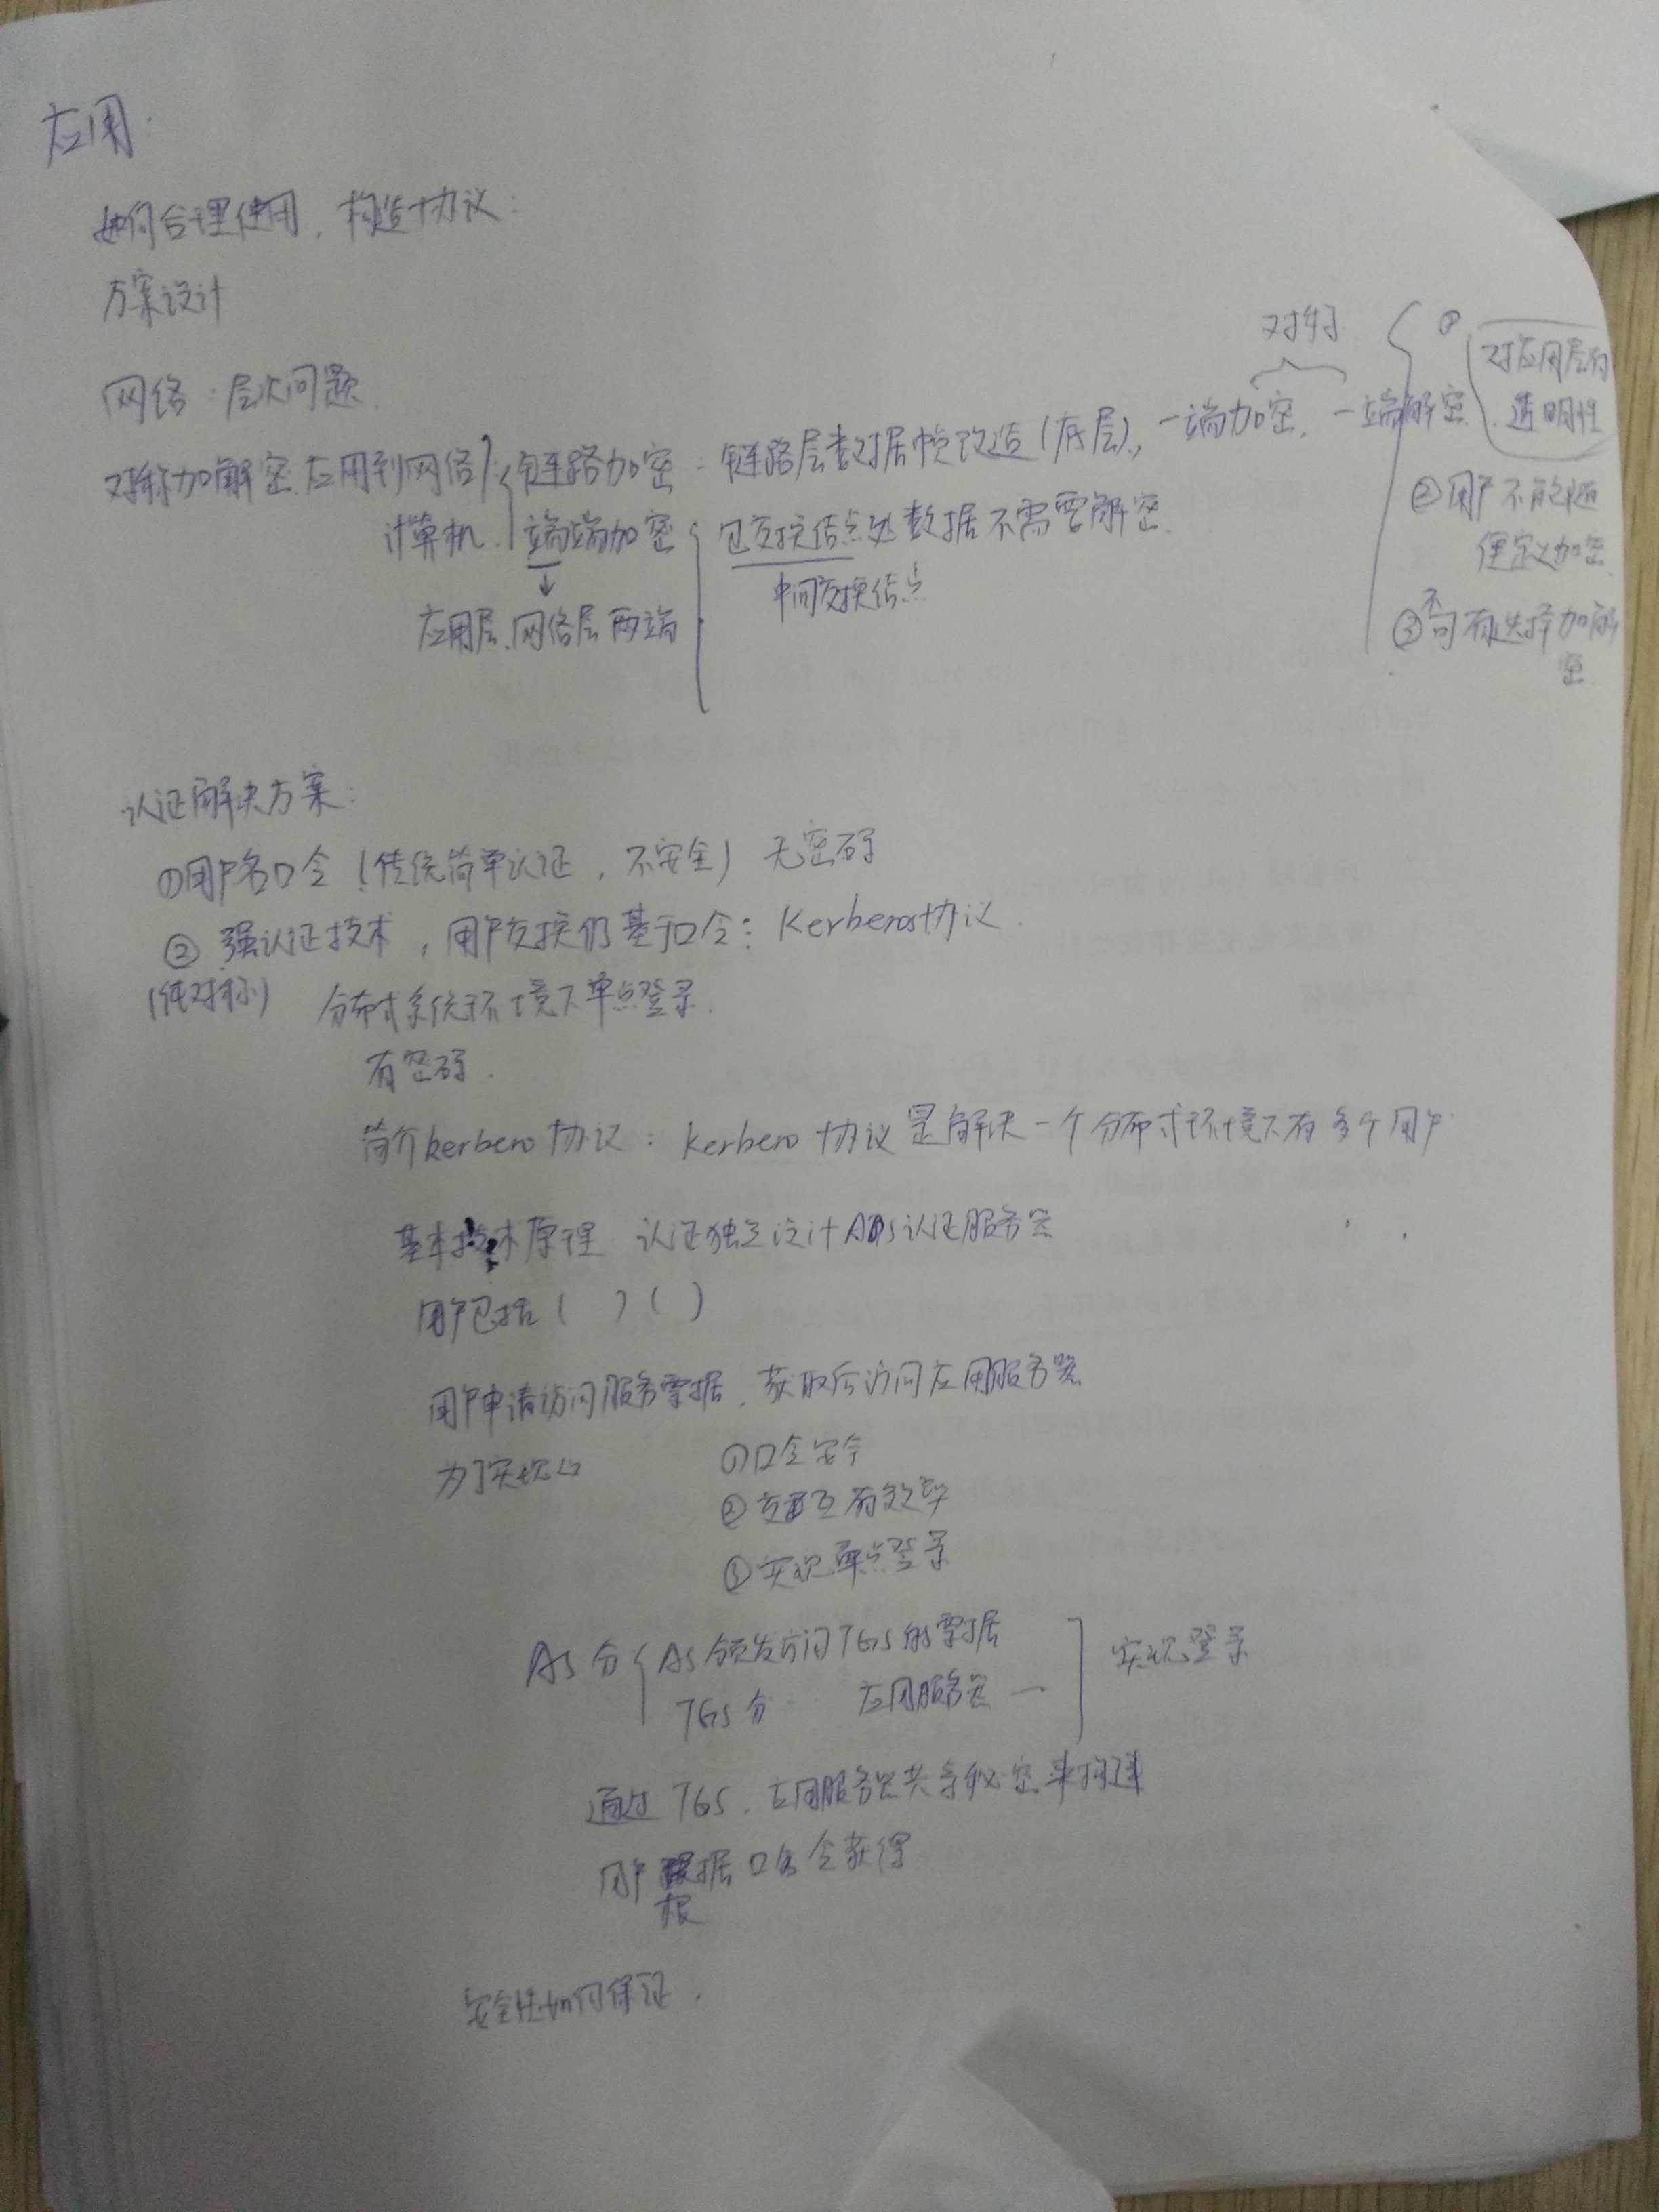 应用:
如何合理使用, 构造协议:
方案设计
网络:层次问题.
对称加解密.应用到网络 链路加密:链路层数据帧改造(底层), 一端加密, 一端解密.
计算机. 端端加密 包交换结点处数据不需要解密.
中间交换结点
应用层.网络层两端
①对应用层的
透明性
②用户不能随
便定义加密.
③不可有选择加解
密.
认证解决方案:
①用户名口令(传统简单认证,不安全) 无密码
② 强认证技术,用户交换仍基于口令:Kerberos协议.
(纯对称) 分布式系统环境下单点登录.
有密码.
简介kerbero协议:kerbero协议是解决一个分布式环境下有多个用户
基本技术原理 认证独立设计AS认证服务器
用户包括( )( )
用户申请访问服务票据.获取后访问应用服务器
为了实现 ①口令安全
②交互有效率
③实现单点登录
AS分 AS颁发访问TGS的票据 实现登录
TGS分 应用服务器 —
通过TGS.应用服务器共享秘密来构建
用户根据口令获得
安全性如何保证.